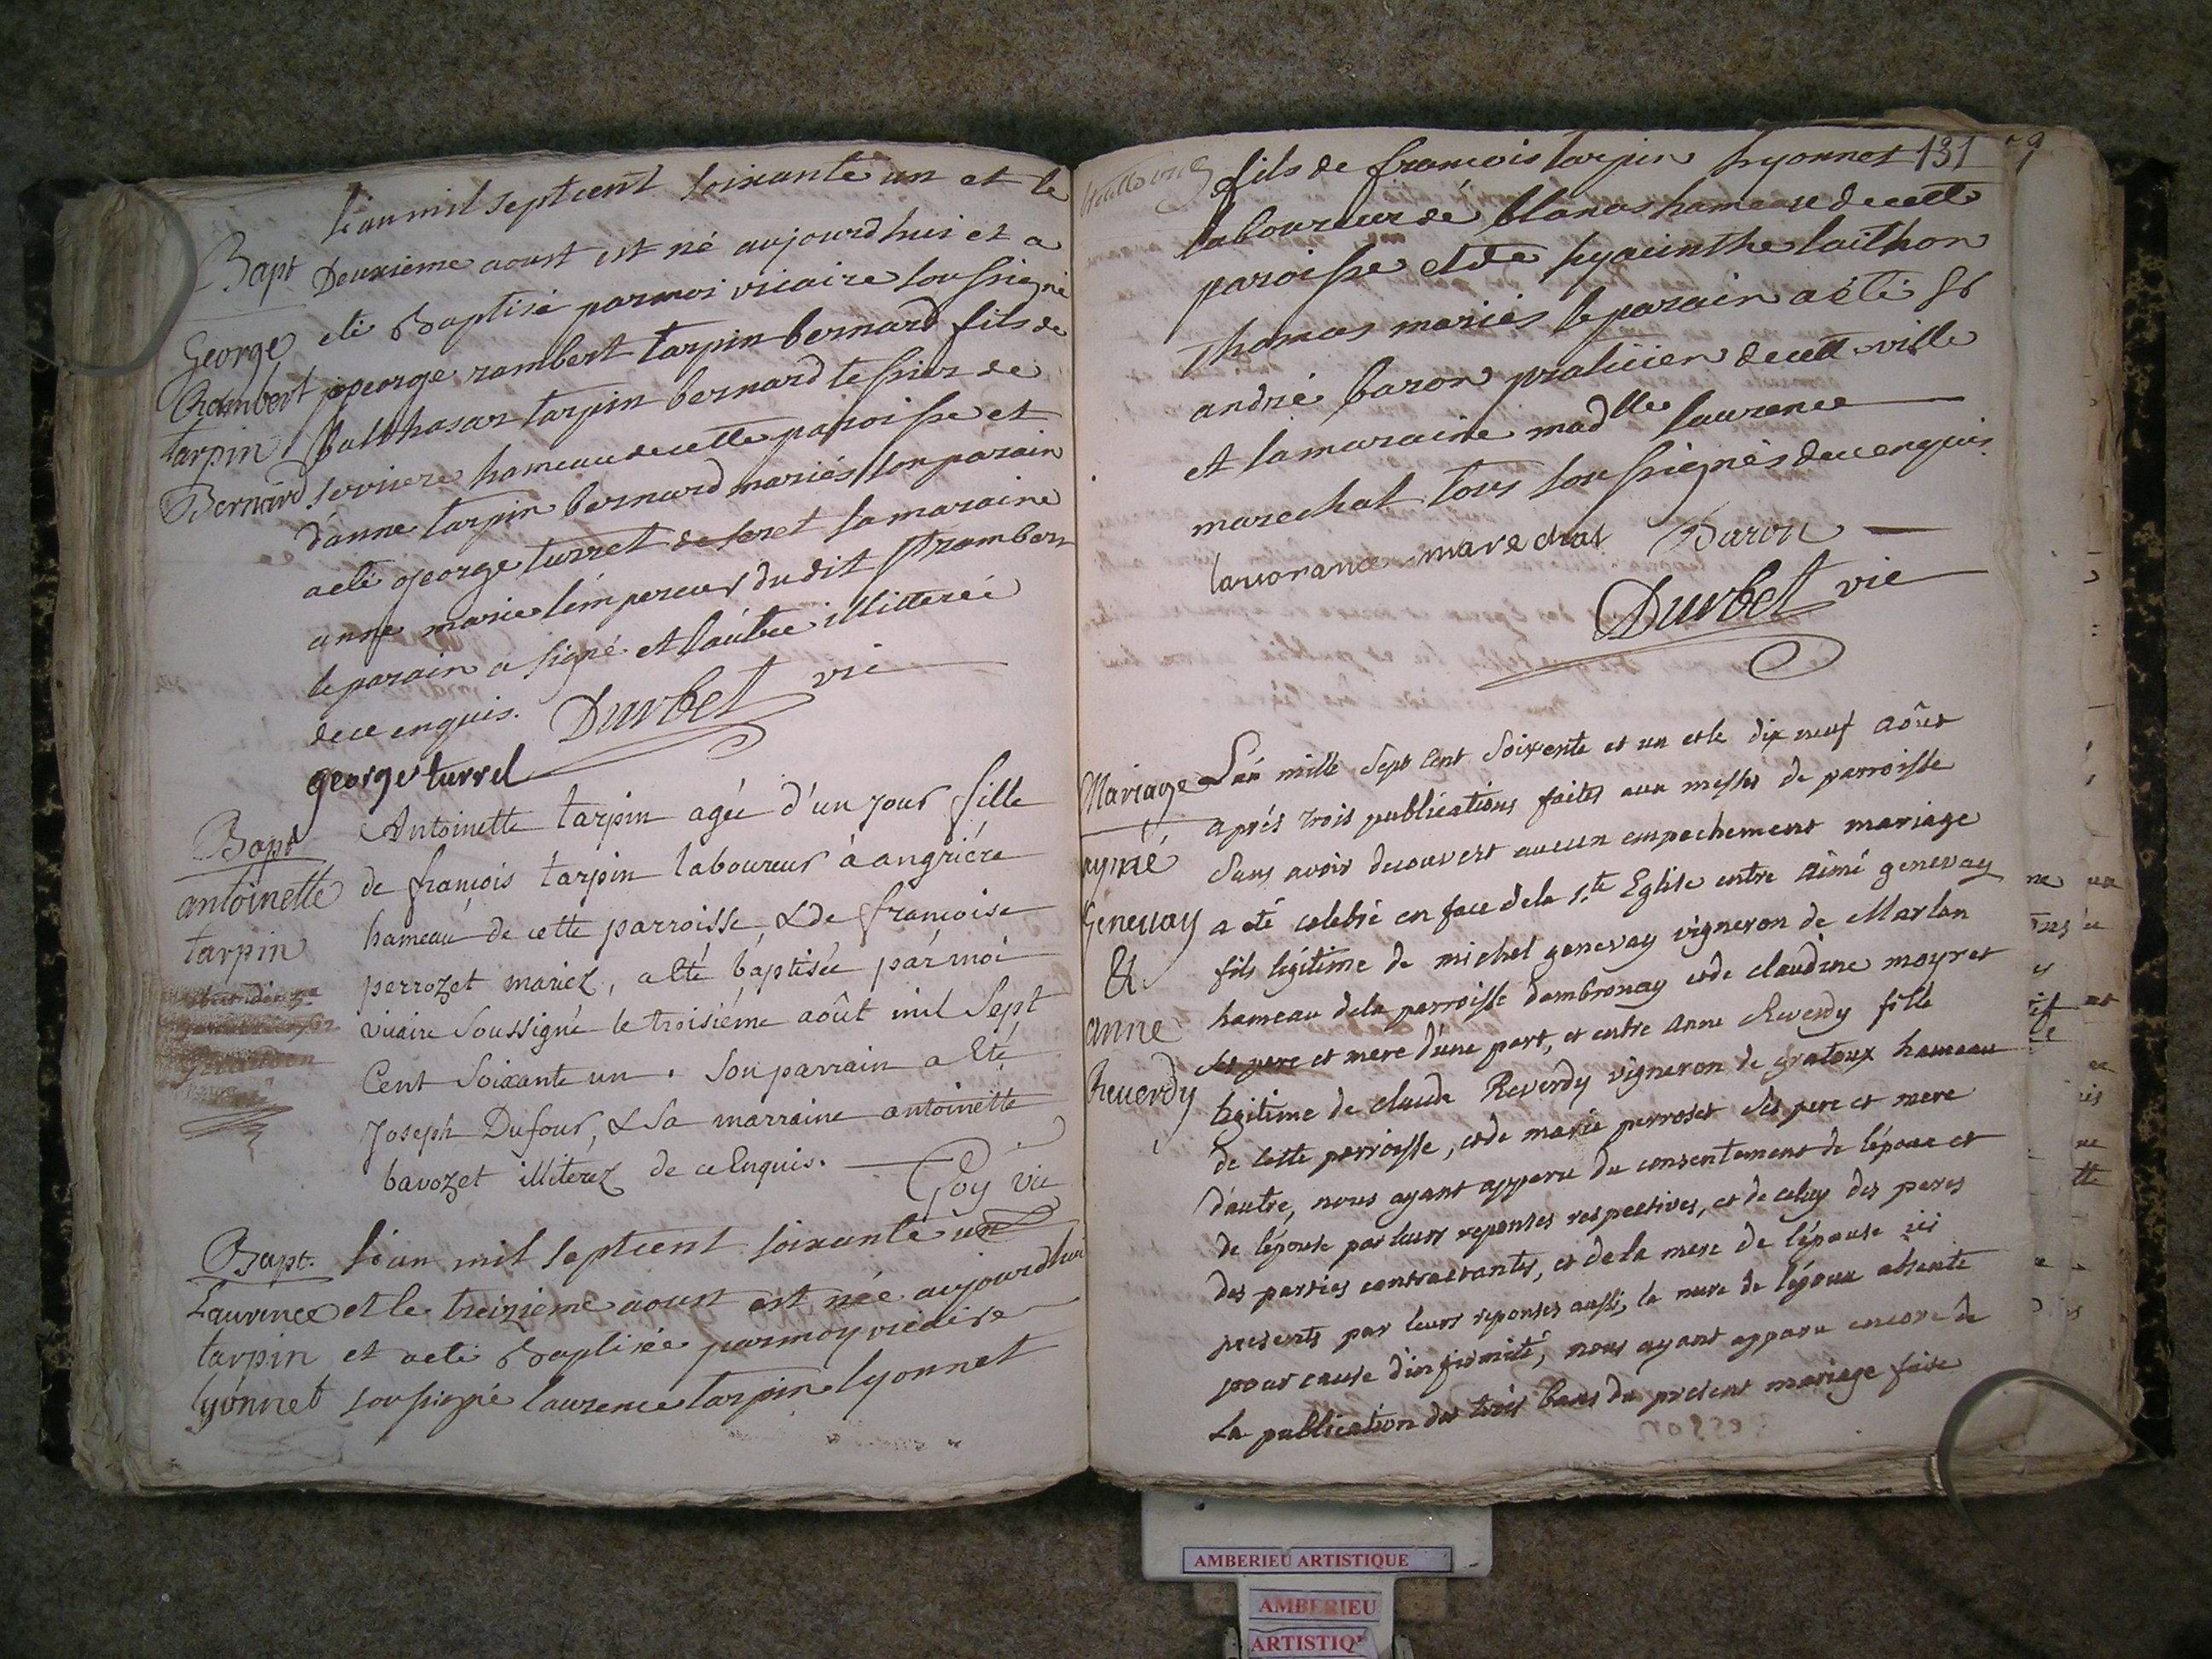 L'an mil sept cent soixante un et le
Bapt
Deuxieme aoust est né aujourdhui et a
George
eté Baptisé par moi vicaire soussigné
Rambert
george rambert tarpin bernard fils de
tarpin
Balthasar tarpin bernard tessier de
Bernard
serviere hameau de cette paroisse et
d'anne tarpin bernard mariés son parain
a eté george turret de seret sa maraine
anne marie l'empereur du dit st rambert
le parain a signé et l'autre illitterée
de ce enquis. Durbet vic
george turrel
Bapt
Antoinette tarpin agée d'un jour fille
antoinette
de françois tarpin laboureur à angriére
tarpin
hameau de cette parroisse, & de françoise
perrozet mariez, a eté baptisée par moi
vicaire Soussigné le troisiéme août mil Sept
Cent Soixante un. Son parrain a eté
Joseph Dufour, & Sa marraine antoinette
bavozet illiterez de ce Enquis. Goy vic
Bapt.
L'an mil sept cent soixante un
Laurence
et le treizieme aoust est née aujourdhui
tarpin
et a eté Baptisée par moy vicaire
lyonnet
soussigné laurence tarpin lyonnet
131
fils de francois tarpin lyonnet
laboureur de blanas hameau de cette
paroisse et de hyacinthe laithon
Thomas mariés le parain a eté sr
andré baron praticien de cette ville
et la maraine madlle laurence
marechal tous soussignés de ce enquis
marechal Baron
Durbet vic
Mariage
L'an mille Sept Cent Soixente et un et le dix neuf Aôut
aprés trois publications faites aux messes de parroisse
aymé
Sans avoir decouvert aucun empechement mariage
Genevay
a eté celebré en face de la s.te Eglise entre Aimé genevay
&
fils légitime de michel genevay vigneron de Marlan
hameau de la parroisse dambronay et de claudine moyret
anne
Ses pere et mere d'une part, et entre Anne Reverdy fille
Reverdy
legitime de claude Reverdy vigneron de gratoux hameau
de cette perroisse, et de marie perroset Ses pere et mere
d'autre, nous ayant apparu du consentement de l'époux et
de l'épouse par leurs reponses respectives, et de celuy des peres
des parties contractantes, et de la mere de l'épouse ici
presents par leurs reponses aussi, la mere de l'époux absente
pour cause d'infirmité, nous ayant apparu encore de
La publication des trois bans du présent mariage faite
AMBERIEU ARTISTIQUE
AMBERIEU
ARTISTIQ